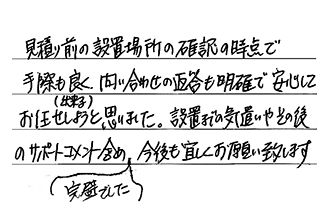 見積り前の設置場所の確認の時点で
手際も良く、問い合わせの返答も明確で安心して
(出来る)
お任せしようと思いました。設置までの気遣いやその後
のサポートコメント含め、今後も宜しくお願い致します
(完璧でした)